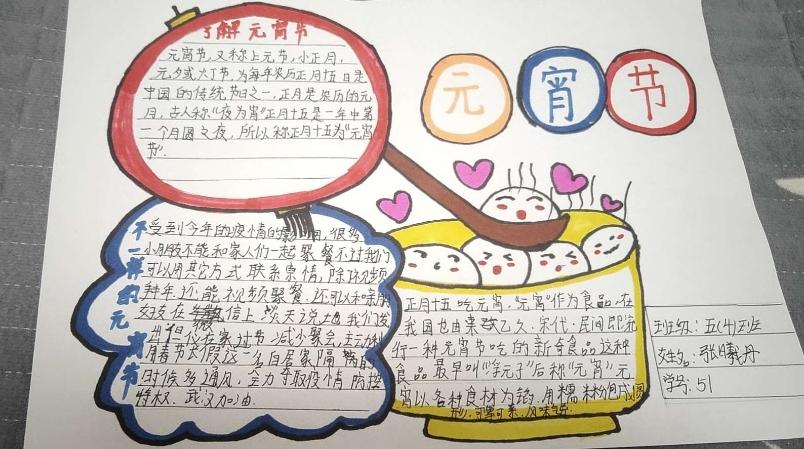 了解元宵节
元宵节，又称上元节，小正月，
元夕或火丁节，为每年农历正月十五日是
中国的传统节日之一，正月是农历的元
月，古人称“夜为宵”正月十五是一年中第
一个月圆之夜，所以称正月十五为“元宵
节”.
元宵节
不一样的元宵节
受到今年的疫情的影响，很多
小朋友不能和家人们一起聚餐不过我们
可以用其它方式联系亲情，除了视频
拜年还能视频聚餐.还可以和亲朋
好友在微信上谈天说地
在家过节.减少聚会，
春节大假这
时候多通风，全力争取疫情防控
特权、武汉加油.
正月十五吃元宵.“元宵”作为食品.在
我国也由来已久.宋代.民间即流
行一种元宵节吃的新奇食品这种
食品最早叫“浮元子”后称“元宵”元
宵以各种食材为馅.用糯米粉包成圆
形.可荤可素.风味
班级：五(4)班
姓名：张曦丹
学号：51